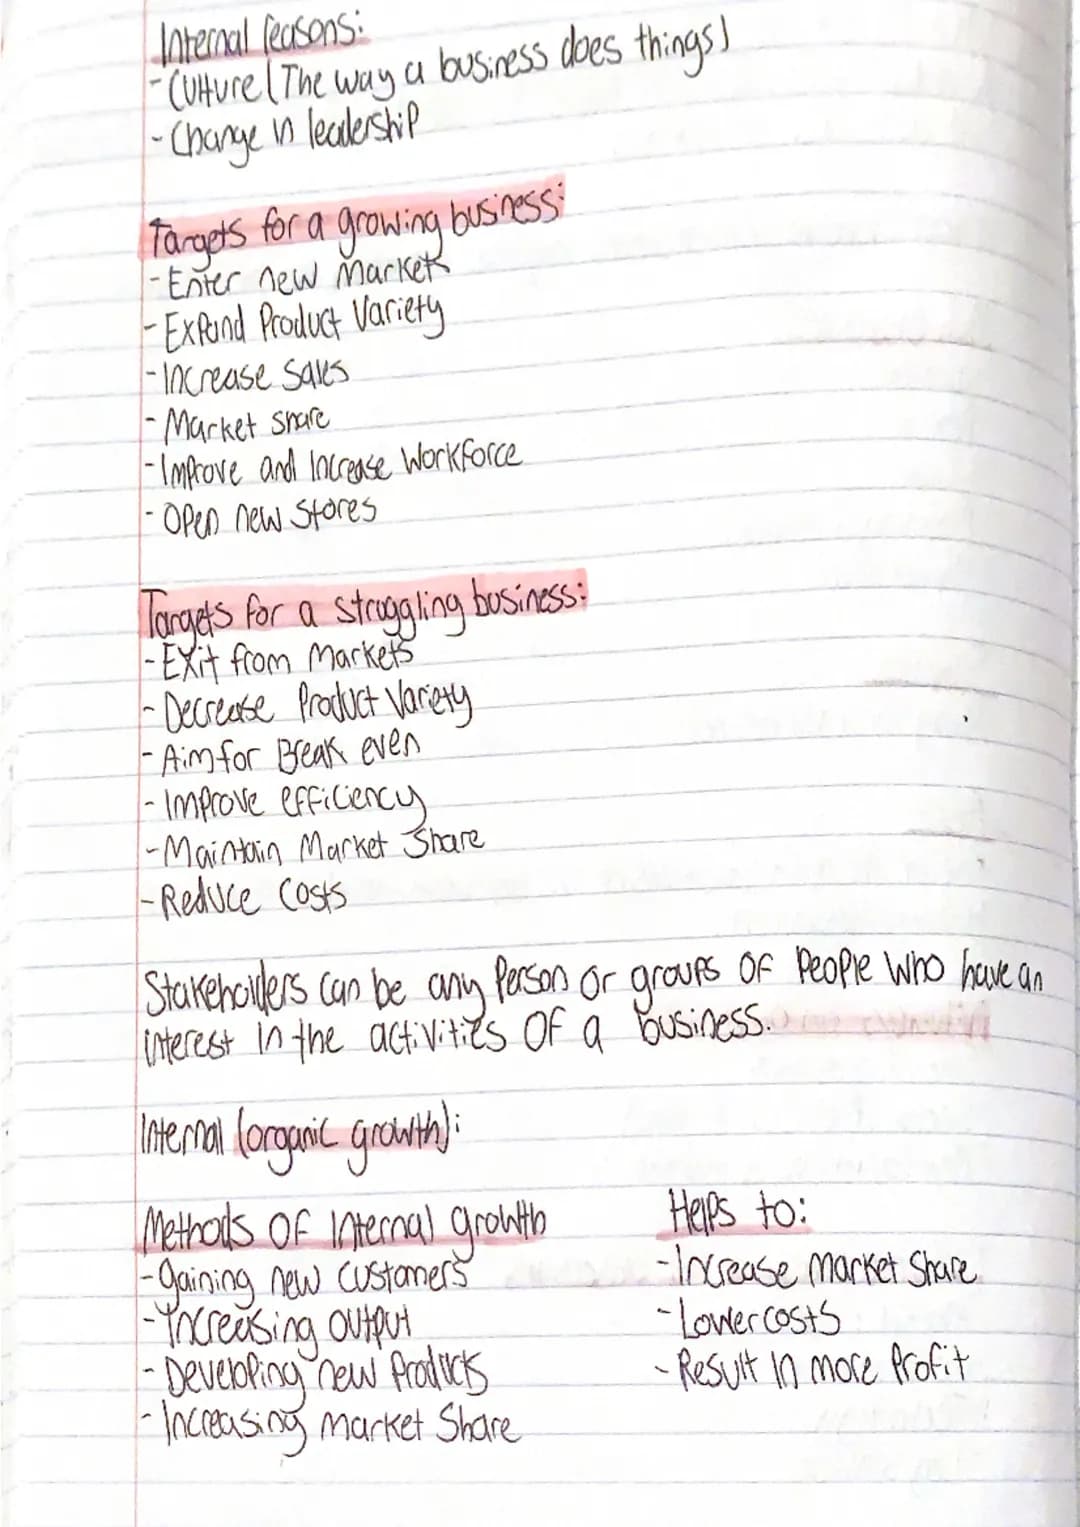 Internal reasons:
- Culture (The way a business does things)
- Change in leadership
Targets for a growing business:
- Enter new Market
- Expand Product Variety
- Increase Sales
- Market share
- Improve and Increase Workforce
- Open new Stores
Targets for a struggling business:
- Exit from Markets
- Decrease Product Variety
- Aim for Break even
- Improve efficiency
- Maintain Market Share
- Reduce Costs
Stakeholders can be any Person or groups OF People Who have an
interest In the activities OF a business.
Internal (organic growth):
Methods OF Internal growth
- gaining new customers
- Increasing output
- Developing new Products
- Increasing market Share
Helps to:
- Increase Market Share
- Lower costs
- Result In more Profit